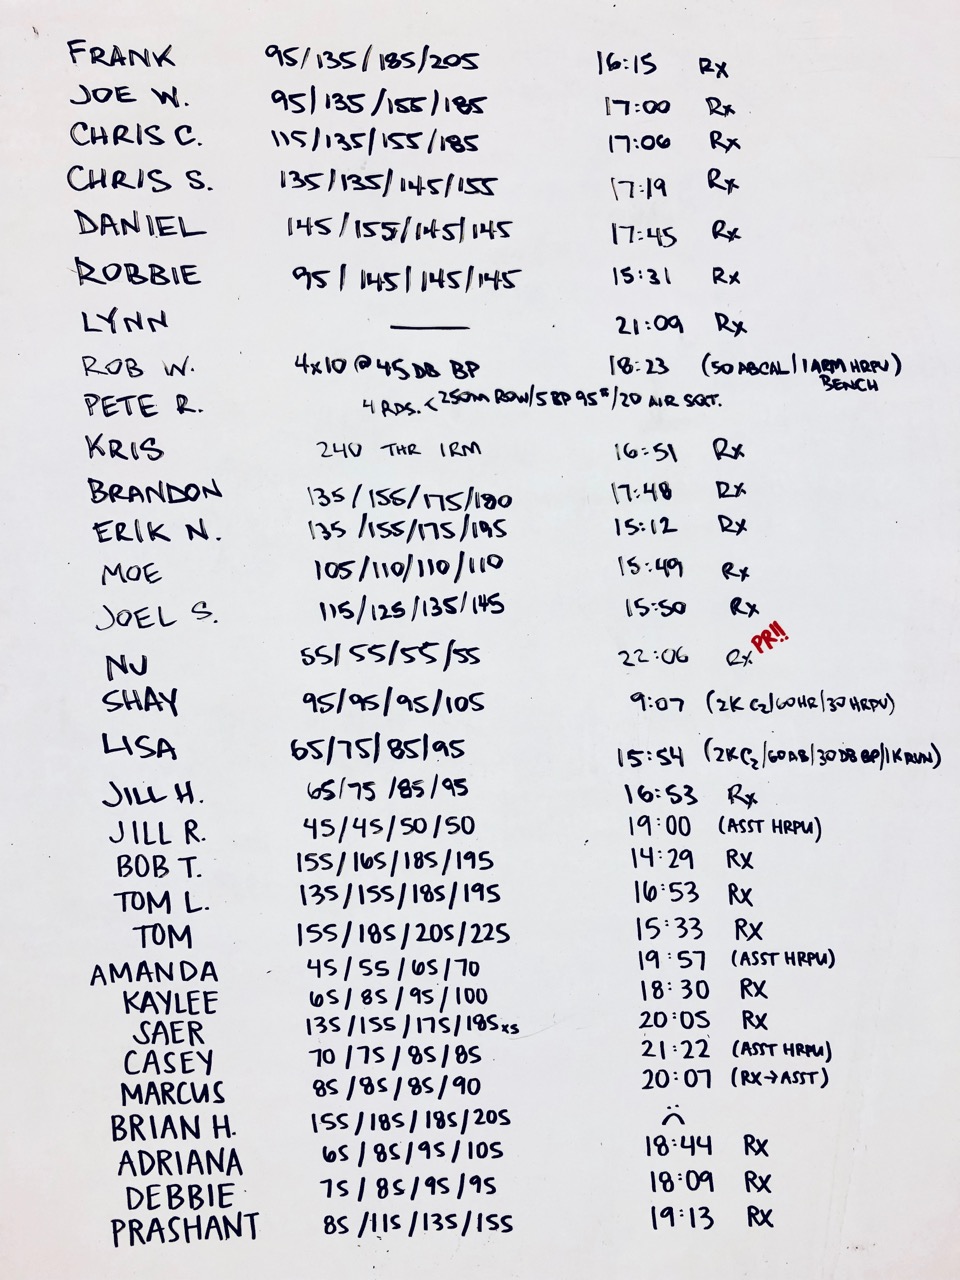 FRANK 95/135/185/205 16:15 Rx
JOE W. 95/135/155/185 17:00 Rx
CHRIS C. 115/135/155/185 17:06 Rx
CHRIS S. 135/135/145/155 17:19 Rx
DANIEL 145/155/145/145 17:45 Rx
ROBBIE 95/145/145/145 15:31 Rx
LYNN — 21:09 Rx
ROB W. 4x10 @ 45 DB BP 18:23 (50 ABCAL/1 ARM HRPU)
BENCH
PETE R. 4 RDS. < 250m ROW/5 BP 95#/20 AIR SQT.
KRIS 240 THR 1RM 16:51 Rx
BRANDON 135/155/175/180 17:48 Rx
ERIK N. 135/155/175/195 15:12 Rx
MOE 105/110/110/110 15:49 Rx
JOEL S. 115/125/135/145 15:50 Rx
NJ 55/55/55/55 22:06 Rx PR!!
SHAY 95/95/95/105 9:07 (2K C2/60HR/30 HRPU)
LISA 65/75/85/95 15:54 (2K C2/60AB/30 DB BP/1K RUN)
JILL H. 65/75/85/95 16:53 Rx
JILL R. 45/45/50/50 19:00 (ASST HRPU)
BOB T. 155/165/185/195 14:29 RX
TOM L. 135/155/185/195 16:53 RX
TOM 155/185/205/225 15:33 RX
AMANDA 45/55/65/70 19:57 (ASST HRPU)
KAYLEE 65/85/95/100 18:30 RX
SAER 135/155/175/185x5 20:05 RX
CASEY 70/75/85/85 21:22 (ASST HRPU)
MARCUS 85/85/85/90 20:07 (RX→ASST)
BRIAN H. 155/185/185/205
ADRIANA 65/85/95/105 18:44 RX
DEBBIE 75/85/95/95 18:09 RX
PRASHANT 85/115/135/155 19:13 RX